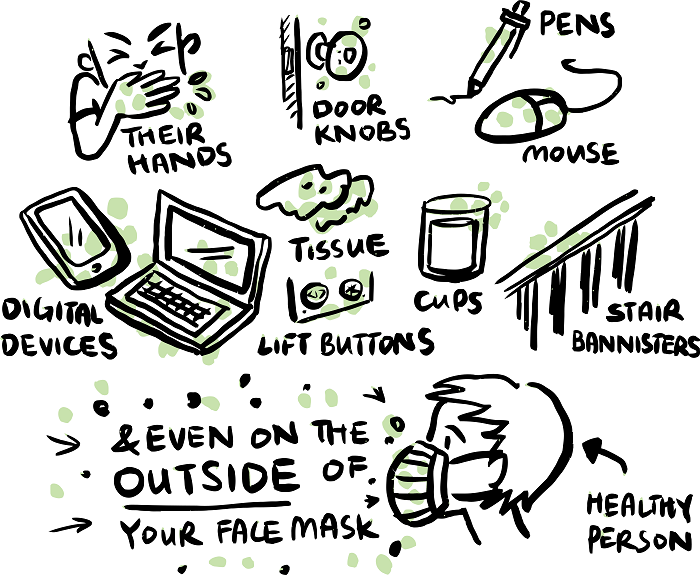 THEIR
HANDS
DOOR
KNOBS
PENS
MOUSE
DIGITAL
DEVICES
TISSUE
LIFT BUTTONS
CUPS
STAIR
BANNISTERS
& EVEN ON THE
OUTSIDE OF
YOUR FACE MASK
HEALTHY
PERSON